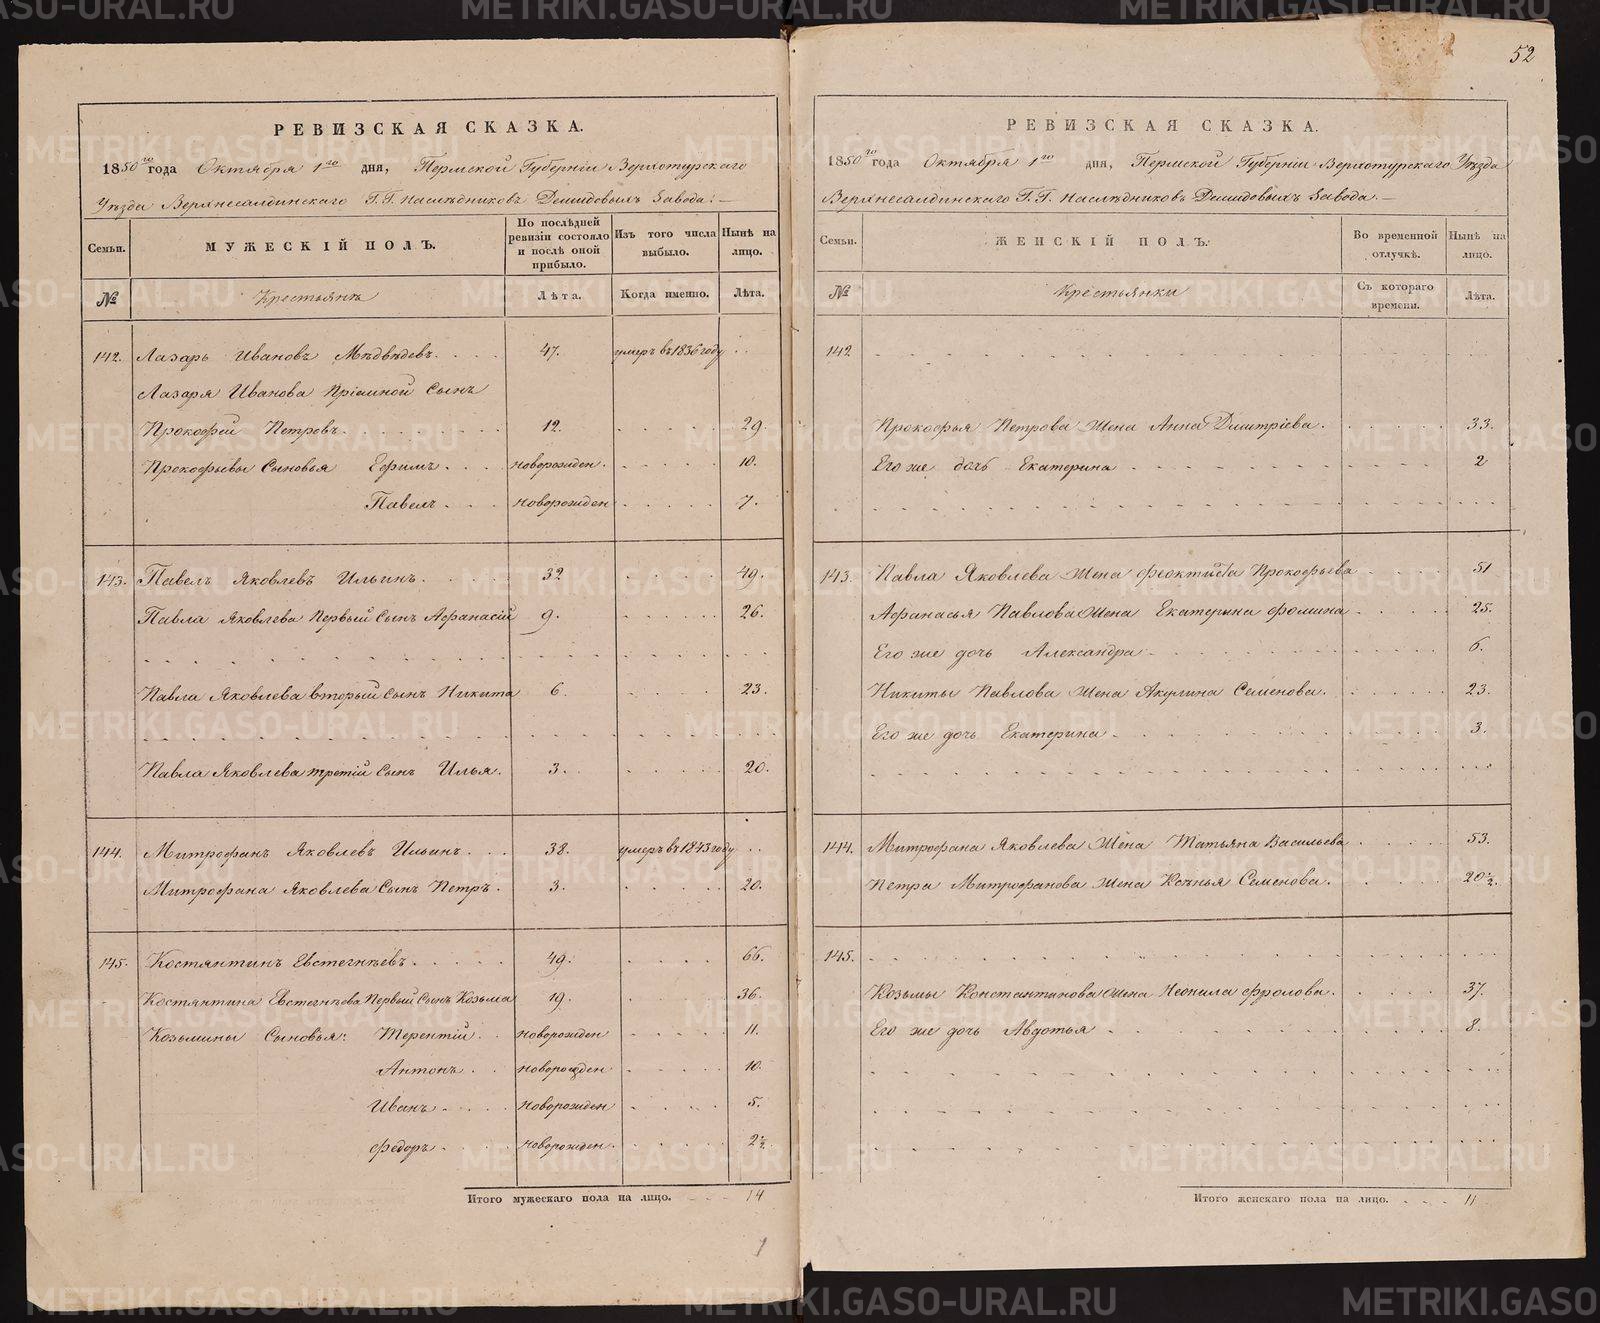 РЕВИЗСКАЯ СКАЗКА.
1850го года Октября 1го дня, Пермской Губерніи Верхотурскаго
Уѣзда Верхнесалдинскаго Г.Г. Наслѣдниковъ Демидовыхъ Завода: —
Семьи.
МУЖЕСКІЙ ПОЛЪ.
По послѣдней ревизіи состояло и послѣ оной прибыло.
Изъ того числа выбыло.
Нынѣ на лицо.
№
Крестьянѣ
Лѣта.
Когда именно.
Лѣта.
142. Лазарь Ивановъ Мѣдвѣдевъ. 47. умеръ въ 1836 году
Лазаря Иванова Пріемной Сынъ
Прокофей Петровъ. 12. 29.
Прокофьевы Сыновья Ефимъ. новорожден. 10.
Павелъ. новорожден 7.
143. Павелъ Яковлевъ Ильинъ. 32 49.
Павла Яковлева Первый Сынъ Афанасій 9. 26.
Павла Яковлева вторый Сынъ Никита 6. 23.
Павла Яковлева третій Сынъ Илья. 3. 20.
144. Митрофанъ Яковлевъ Ильинъ. 38. умеръ въ 1843 году
Митрофана Яковлева Сынъ Петръ. 3. 20.
145. Костянтинъ Евстегнѣевъ. 49. 66.
Костянтина Евстегнѣева Первый Сынъ Козьма 19. 36.
Козьмины Сыновья: Терентій новорожден 11.
Антонъ новорожден 10.
Иванъ новорожден 5.
Федоръ новорожден. 2½
Итого мужескаго пола на лицо. 14
52
РЕВИЗСКАЯ СКАЗКА.
1850го года Октября 1го дня, Пермской Губерніи Верхотурскаго Уѣзда
Верхнесалдинскаго Г.Г. Наслѣдниковъ Демидовыхъ Завода. —
Семьи.
ЖЕНСКІЙ ПОЛЪ.
Во временной отлучкѣ.
Нынѣ на лицо.
№
Крестьянки
Съ котораго времени.
Лѣта.
142
Прокофья Петрова Жена Анна Дмитріева. 33.
Его же дочь Екатерина 2
143. Павла Яковлева Жена Феоктиста Прокофьева 51
Афанасья Павлова Жена Екатерина Фомина 25.
Его же дочь Александра 6.
Никиты Павлова Жена Акулина Семенова. 23.
Его же дочь Екатерина 3.
144. Митрофана Яковлева Жена Татьяна Васильева 53.
Петра Митрофанова Жена Ксѣнья Семенова. 20½.
145.
Козьмы Константинова Жена Неонила Фролова. 37.
Его же дочь Авдотья 8.
Итого женскаго пола на лицо. 11
METRIKI.GASO-URAL.RU